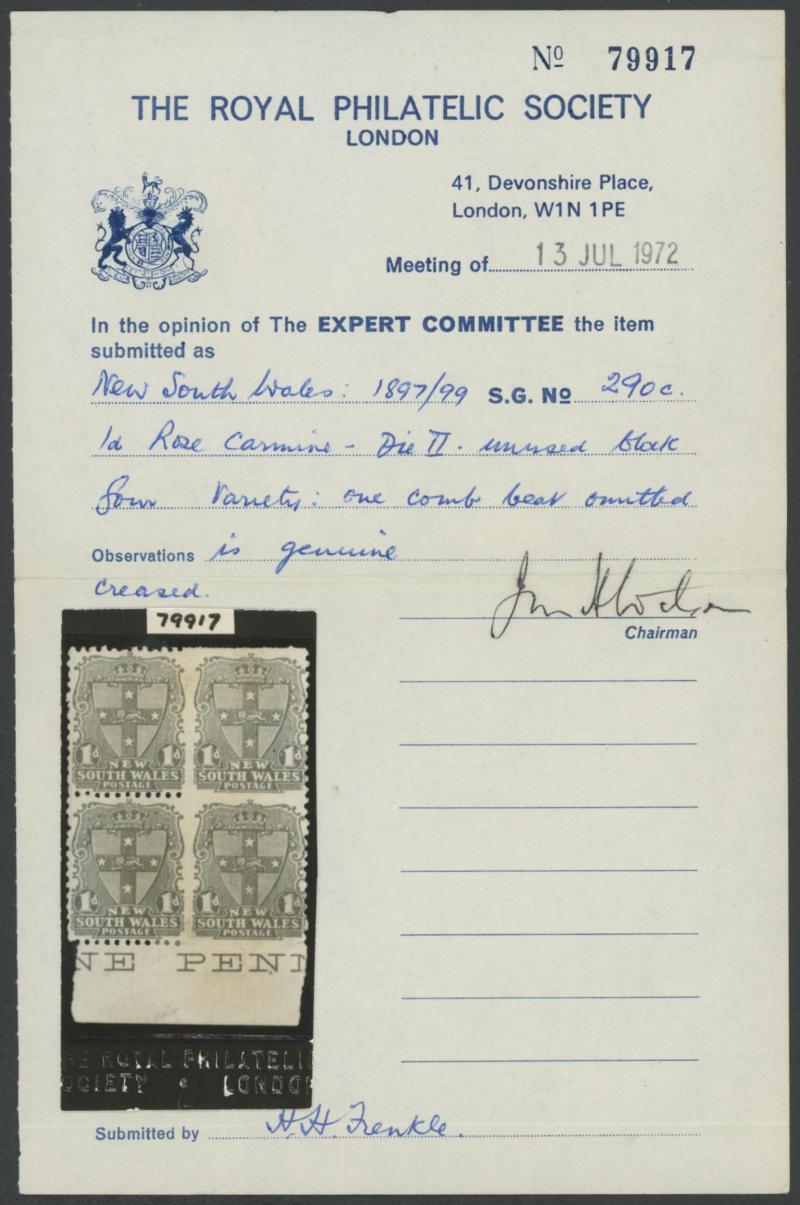 Nº 79917
THE ROYAL PHILATELIC SOCIETY
LONDON
41, Devonshire Place,
London, W1N 1PE
Meeting of 13 JUL 1972
In the opinion of The EXPERT COMMITTEE the item
submitted as
New South Wales: 1897/99 S.G. Nº 290c.
1d Rose Carmine - Die II. unused block
four Variety: one comb beat omitted
Observations is genuine
creased.
Chairman
79917
1d 1d 1d 1d
NEW NEW
SOUTH WALES SOUTH WALES
POSTAGE POSTAGE
1d 1d 1d 1d
NEW NEW
SOUTH WALES SOUTH WALES
POSTAGE POSTAGE
NE PENN
HE ROYAL PHILATELI
OCIETY LONDON
Submitted by H.H. Frenkle.